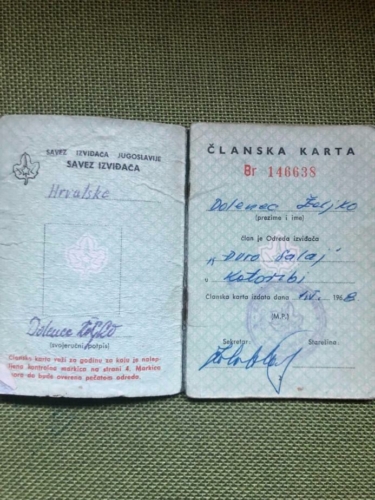 SAVEZ IZVIĐAČA JUGOSLAVIJE
SAVEZ IZVIĐAČA
Hrvatske
Dolenec Željko
(svojeručni potpis)
Članska karta važi za godinu za koju je nalep-
ljena kontrolna markica na strani 4. Markica
mora da bude overena pečatom odreda.
ČLANSKA KARTA
Br 146638
Dolenec Željko
(prezime i ime)
član je Odreda izviđača
"Đuro Salaj"
u Kotoribi
Članska karta izdata dana 196
(M.P.)
Sekretar: Starešina: